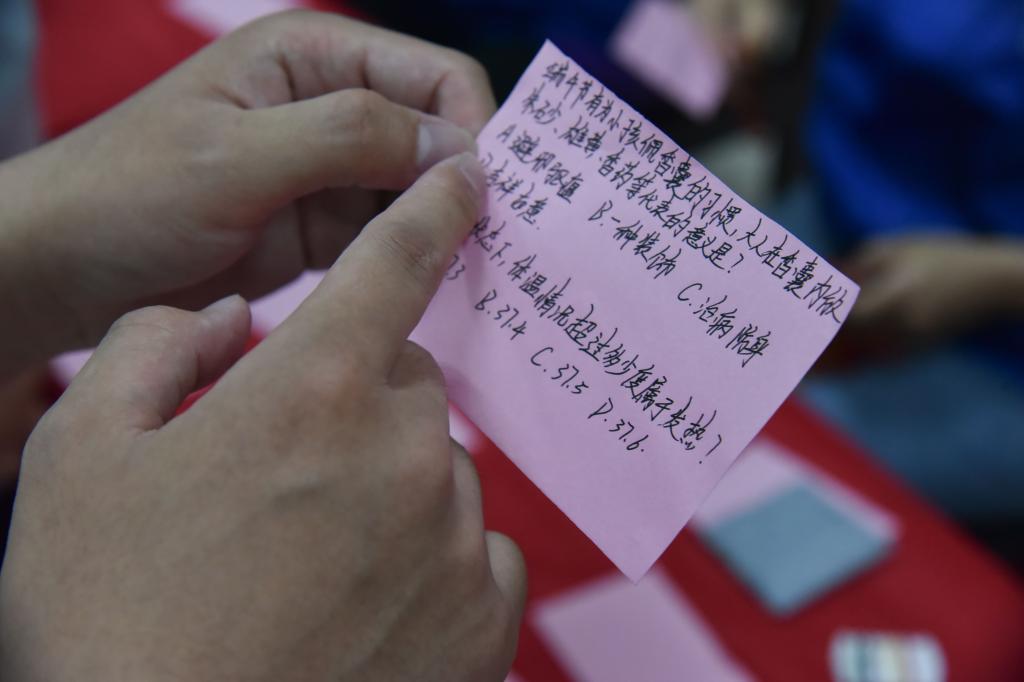 端午节有为小孩佩香囊的习惯,大人在香囊内放
朱砂、雄黄、香药等代表的意义是?
A.避邪驱瘟 B.一种装饰 C.治病防身
吉祥寓意.
状态下,体温情况超过多少度属于发热?
7.3 B.37.4 C.37.5 D.37.6.